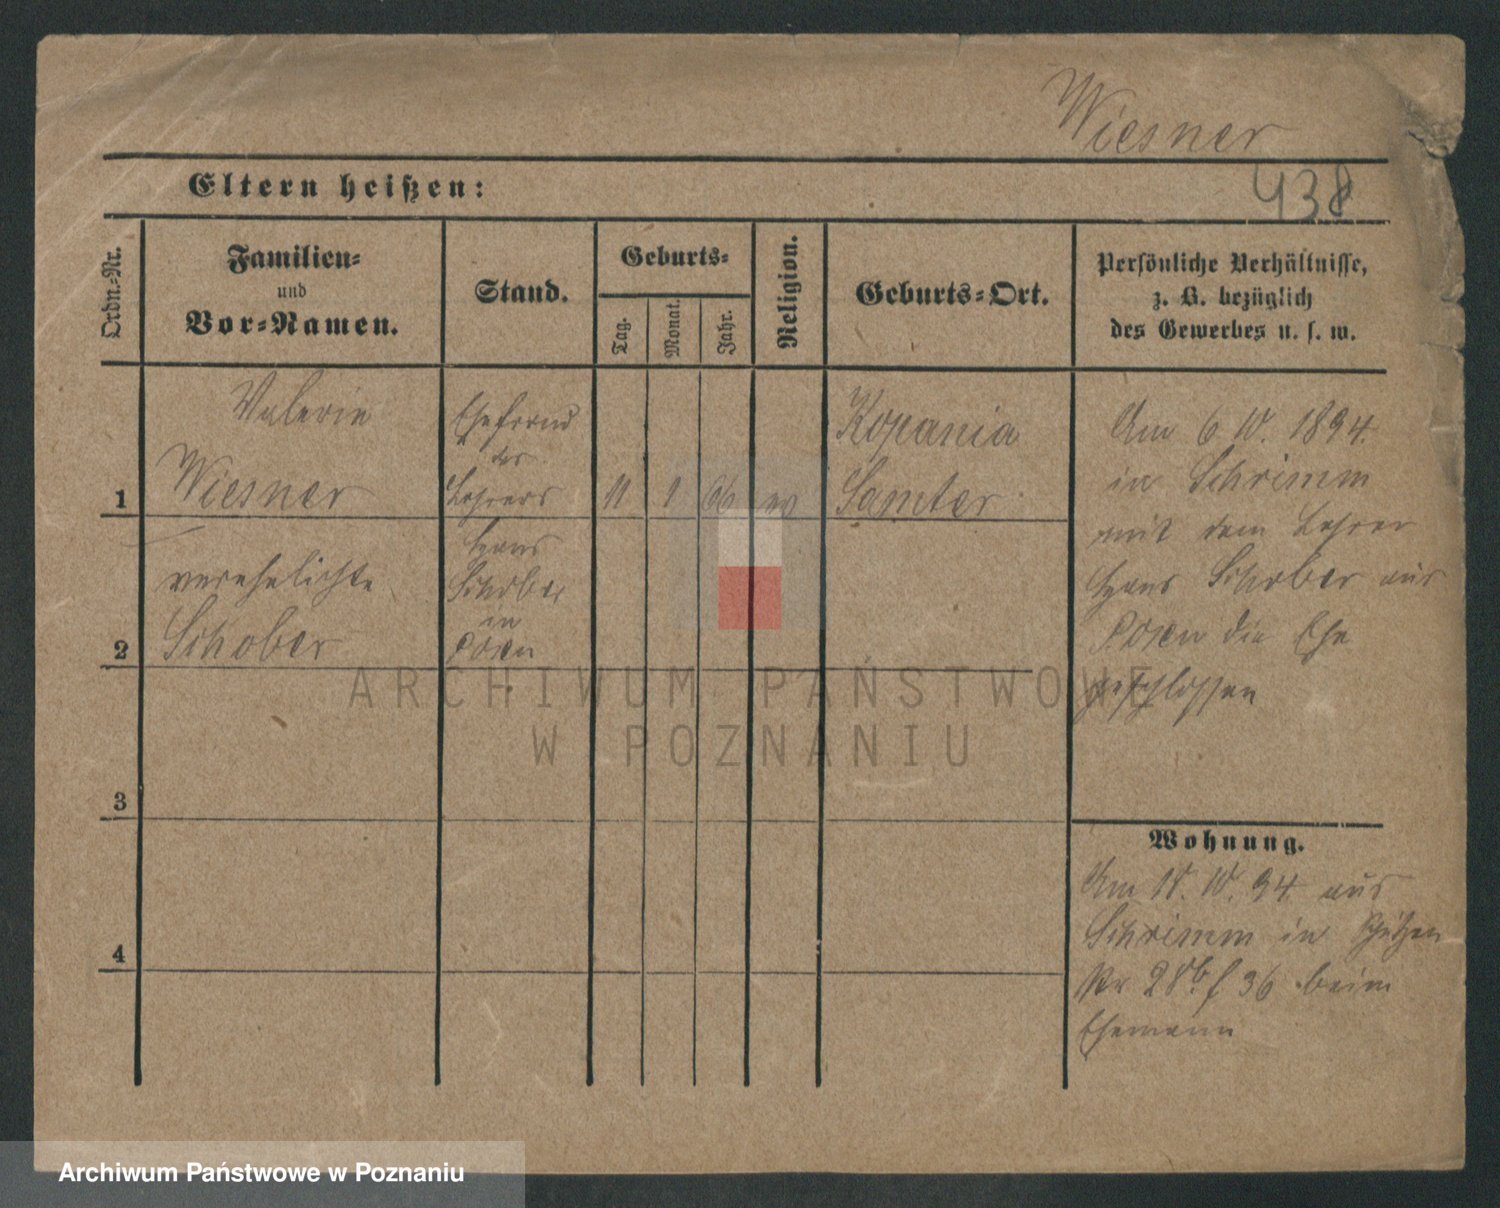 Wiesner
438
Eltern heißen:
Ordn.=Nr.
Familien=
und
Vor=Namen.
Stand.
Geburts=
Tag.
Monat.
Jahr.
Religion.
Geburts=Ort.
Persönliche Verhältnisse,
z. B. bezüglich
des Gewerbes u. s. w.
1
Valerie
Wiesner
Ehefrau
des
Lehrers
11
1
66
Kopania
Samter
2
verehelichte
Schober
Hans
Schober
in
Posen
3
4
Am 6.10.1894.
in Schrimm
mit dem Lehrer
Hans Schober aus
Posen die Ehe
geschlossen
Wohnung.
Am 10.10.94. aus
Schrimm in Schützen
Nr 28b. f 36 beim
Ehemann
ARCHIWUM PAŃSTWOWE
W POZNANIU
Archiwum Państwowe w Poznaniu